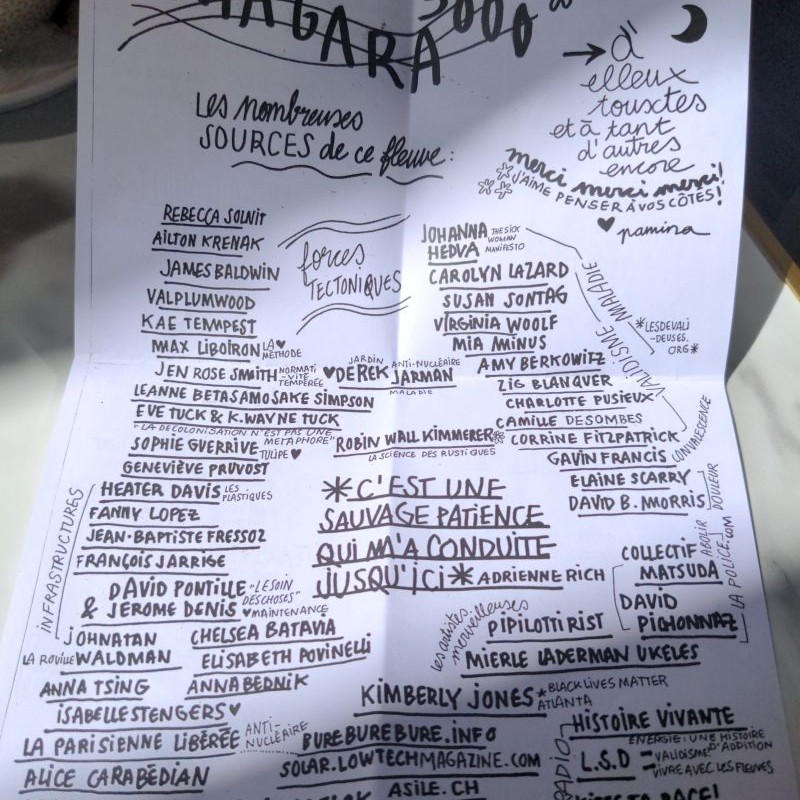 NIAGARA 3000
→ d'
elleux
toustes
et à tant
d'autres
encore
merci merci merci!
J'AIME PENSER À VOS CÔTÉS!
pamina
Les nombreuses
SOURCES de ce fleuve:
REBECCA SOLNIT
AILTON KRENAK
JAMES BALDWIN
VALPLUMWOOD
KAE TEMPEST
MAX LIBOIRON LA MÉTHODE
JEN ROSE SMITH NORMATIVITÉ TEMPÉRÉE
LEANNE BETASAMOSAKE SIMPSON
EVE TUCK & K. WAYNE TUCK
"LA DÉCOLONISATION N'EST PAS UNE MÉTAPHORE"
SOPHIE GUERRIVE TULIPE
GENEVIÈVE PRUVOST
forces
TECTONIQUES
JARDIN ANTI-NUCLÉAIRE
DEREK JARMAN
MALADIE
ROBIN WALL KIMMERER
LA SCIENCE DES RUSTIQUES
JOHANNA HEDVA THE SICK WOMAN MANIFESTO
CAROLYN LAZARD
SUSAN SONTAG
VIRGINIA WOOLF
MIA MINUS
AMY BERKOWITZ
ZIG BLANQUER
CHARLOTTE PUSIEUX
CAMILLE DESOMBES
CORRINE FITZPATRICK
GAVIN FRANCIS
ELAINE SCARRY
DAVID B. MORRIS
VALIDISME MALADIE
*LESDEVALI
-DEUSES.
ORG*
CONVALESCENCE
DOULEUR
INFRASTRUCTURES
HEATER DAVIS LES PLASTIQUES
FANNY LOPEZ
JEAN-BAPTISTE FRESSOZ
FRANÇOIS JARRIGE
DAVID PONTILLE
& JEROME DENIS
"LE SOIN DES CHOSES"
MAINTENANCE
*C'EST UNE
SAUVAGE PATIENCE
QUI M'A CONDUITE
JUSQU'ICI* ADRIENNE RICH
COLLECTIF
MATSUDA
DAVID
PICHONNAZ
ABOLIR
LA POLICE.COM
LA POLICE
les artistes
merveilleuses
PIPILOTTI RIST
MIERLE LADERMAN UKELES
JOHNATAN
LA ROUILLE WALDMAN
CHELSEA BATAVIA
ELISABETH POVINELLI
ANNA TSING
ANNA BEDNIK
ISABELLE STENGERS
LA PARISIENNE LIBÉRÉE ANTI-NUCLÉAIRE
ALICE CARABÉDIAN
KIMBERLY JONES *BLACK LIVES MATTER ATLANTA
BUREBUREBURE.INFO
SOLAR.LOWTECHMAGAZINE.COM
ASILE.CH
RADIO
HISTOIRE VIVANTE
ENERGIE: UNE HISTOIRE D'ADDITION
L.S.D
VALIDISME
VIVRE AVEC LES FLEUVES